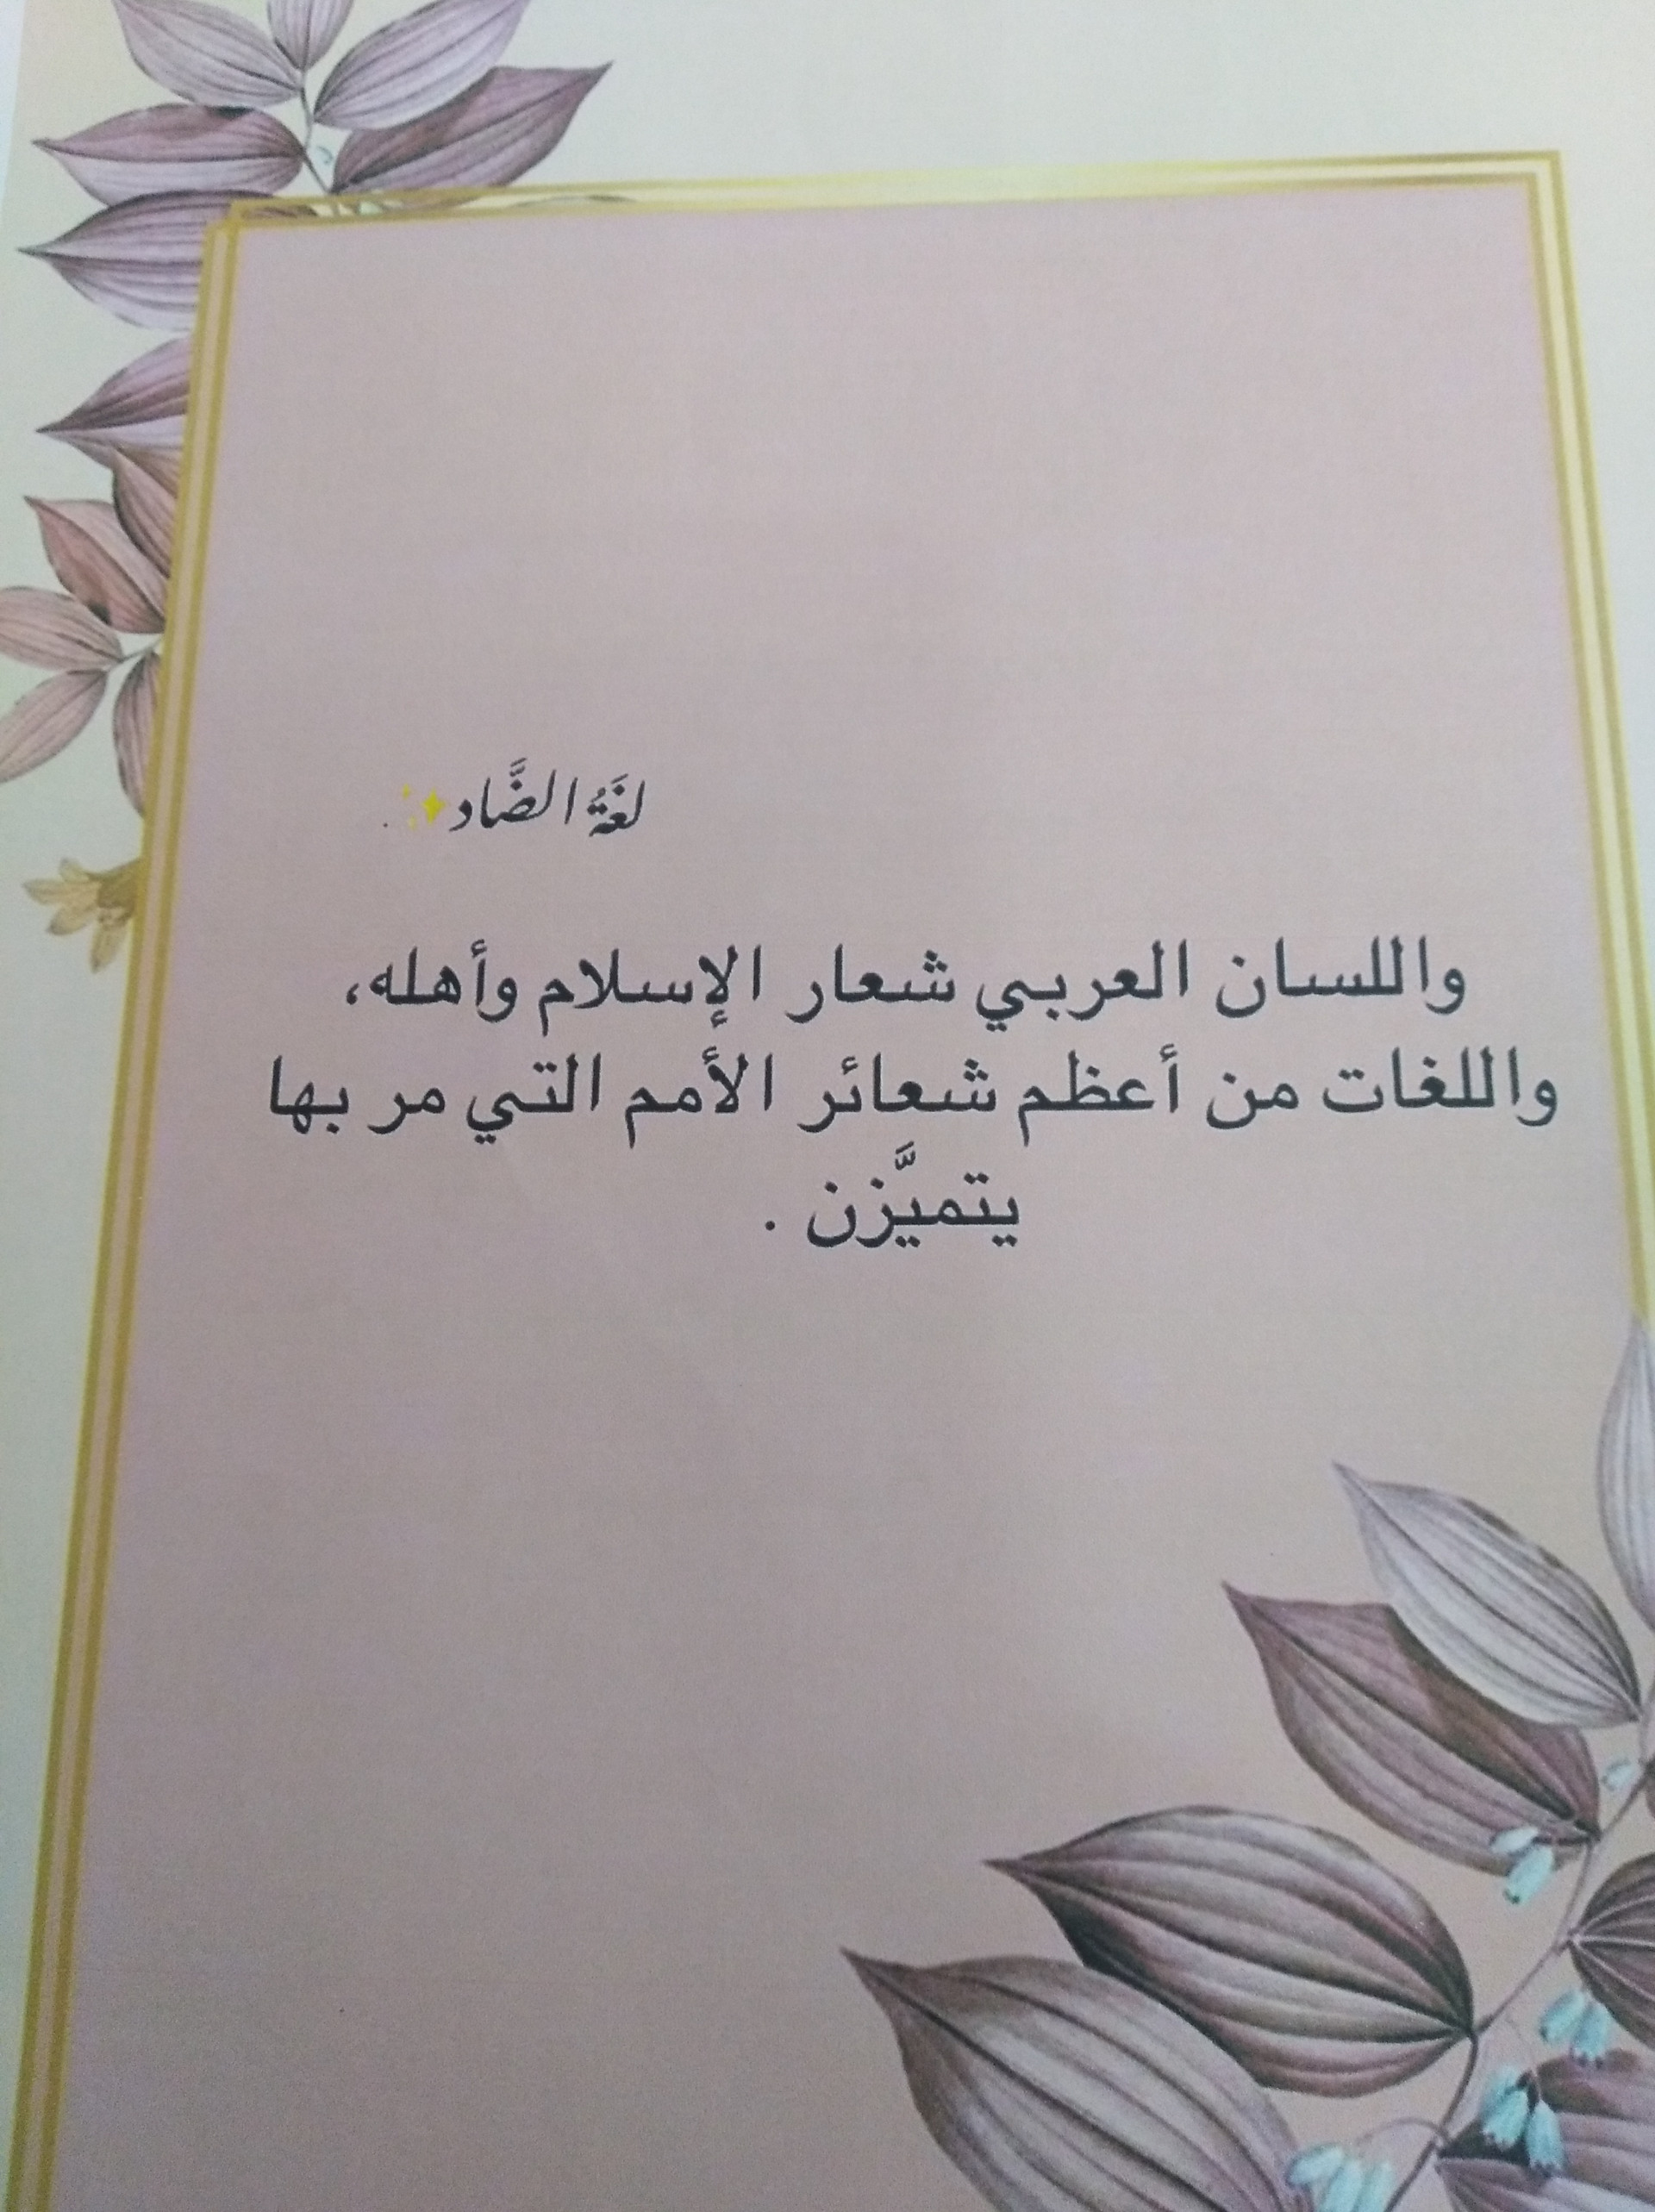 لغَةُ الضَّاد
واللسان العربي شعار الإسلام وأهله،
واللغات من أعظم شعائر الأمم التي مر بها
يتميَّزن .